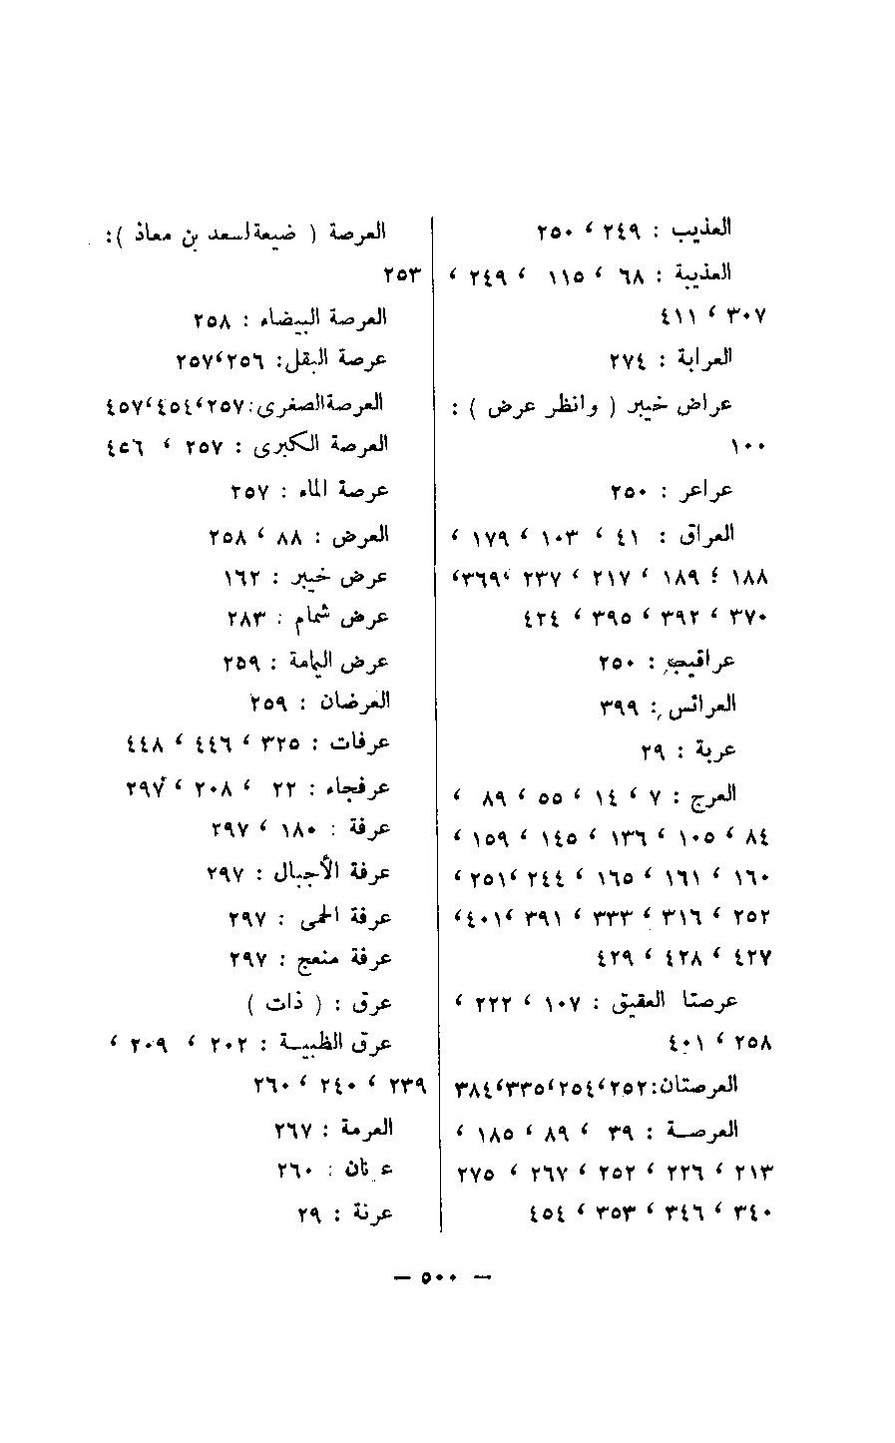 العذيب : ٢٤٩ ، ٢٥٠
العذيبة : ٦٨ ، ١١٥ ، ٢٤٩ ،
٣٠٧ ، ٤١١
العرابة : ٢٧٤
عراض خيبر ( وانظر عرض ) :
١٠٠
عراعر : ٢٥٠
العراق : ٤١ ، ١٠٣ ، ١٧٩ ،
١٨٨ ؛ ١٨٩ ، ٢١٧ ، ٢٣٧ ،٣٦٩،
٣٧٠ ، ٣٩٢ ، ٣٩٥ ، ٤٢٤
عراقيب : ٢٥٠
العرائس : ٣٩٩
عربة : ٢٩
العرج : ٧ ، ١٤ ، ٥٥ ، ٨٩ ،
٨٤ ، ١٠٥ ، ١٣٦ ، ١٤٥ ، ١٥٩ ،
١٦٠ ، ١٦١ ، ١٦٥ ، ٢٤٤ ،٢٥١ ،
٢٥٢ ، ٣١٦ ، ٣٣٣ ، ٣٩١ ،٤٠١،
٤٢٧ ، ٤٢٨ ، ٤٢٩
عرصتا العقيق : ١٠٧ ، ٢٢٢ ،
٢٥٨ ، ٤٠١
العرصتان:٢٥٢،٢٥٤،٣٣٥،٣٨٤
العرصة : ٣٩ ، ٨٩ ، ١٨٥ ،
٢١٣ ، ٢٢٦ ، ٢٥٢ ، ٢٦٧ ، ٢٧٥
٣٤٠ ، ٣٤٦ ، ٣٥٣ ، ٤٥٤
العرصة ( ضيعة لسعد بن معاذ ):
٢٥٣
العرصة البيضاء : ٢٥٨
عرصة البقل: ٢٥٦،٢٥٧
العرصة الصغرى:٢٥٧،٤٥٤،٤٥٧
العرصة الكبرى : ٢٥٧ ، ٤٥٦
عرصة الماء : ٢٥٧
العرض : ٨٨ ، ٢٥٨
عرض خيبر : ١٦٢
عرض شمام : ٢٨٣
عرض اليمامة : ٢٥٩
العرضان : ٢٥٩
عرفات : ٣٢٥ ، ٤٤٦ ، ٤٤٨
عرفجاء : ٢٢ ، ٢٠٨ ، ٢٩٧
عرفة : ١٨٠ ، ٢٩٧
عرفة الأجبال : ٢٩٧
عرفة الحمى : ٢٩٧
عرفة منعج : ٢٩٧
عرق : ( ذات )
عرق الظبيـة : ٢٠٢ ، ٢٠٩ ،
٢٣٩ ، ٢٤٠ ، ٢٦٠
العرمة : ٢٦٧
عرنان : ٢٦٠
عرنة : ٢٩
— ٥٠٠ —